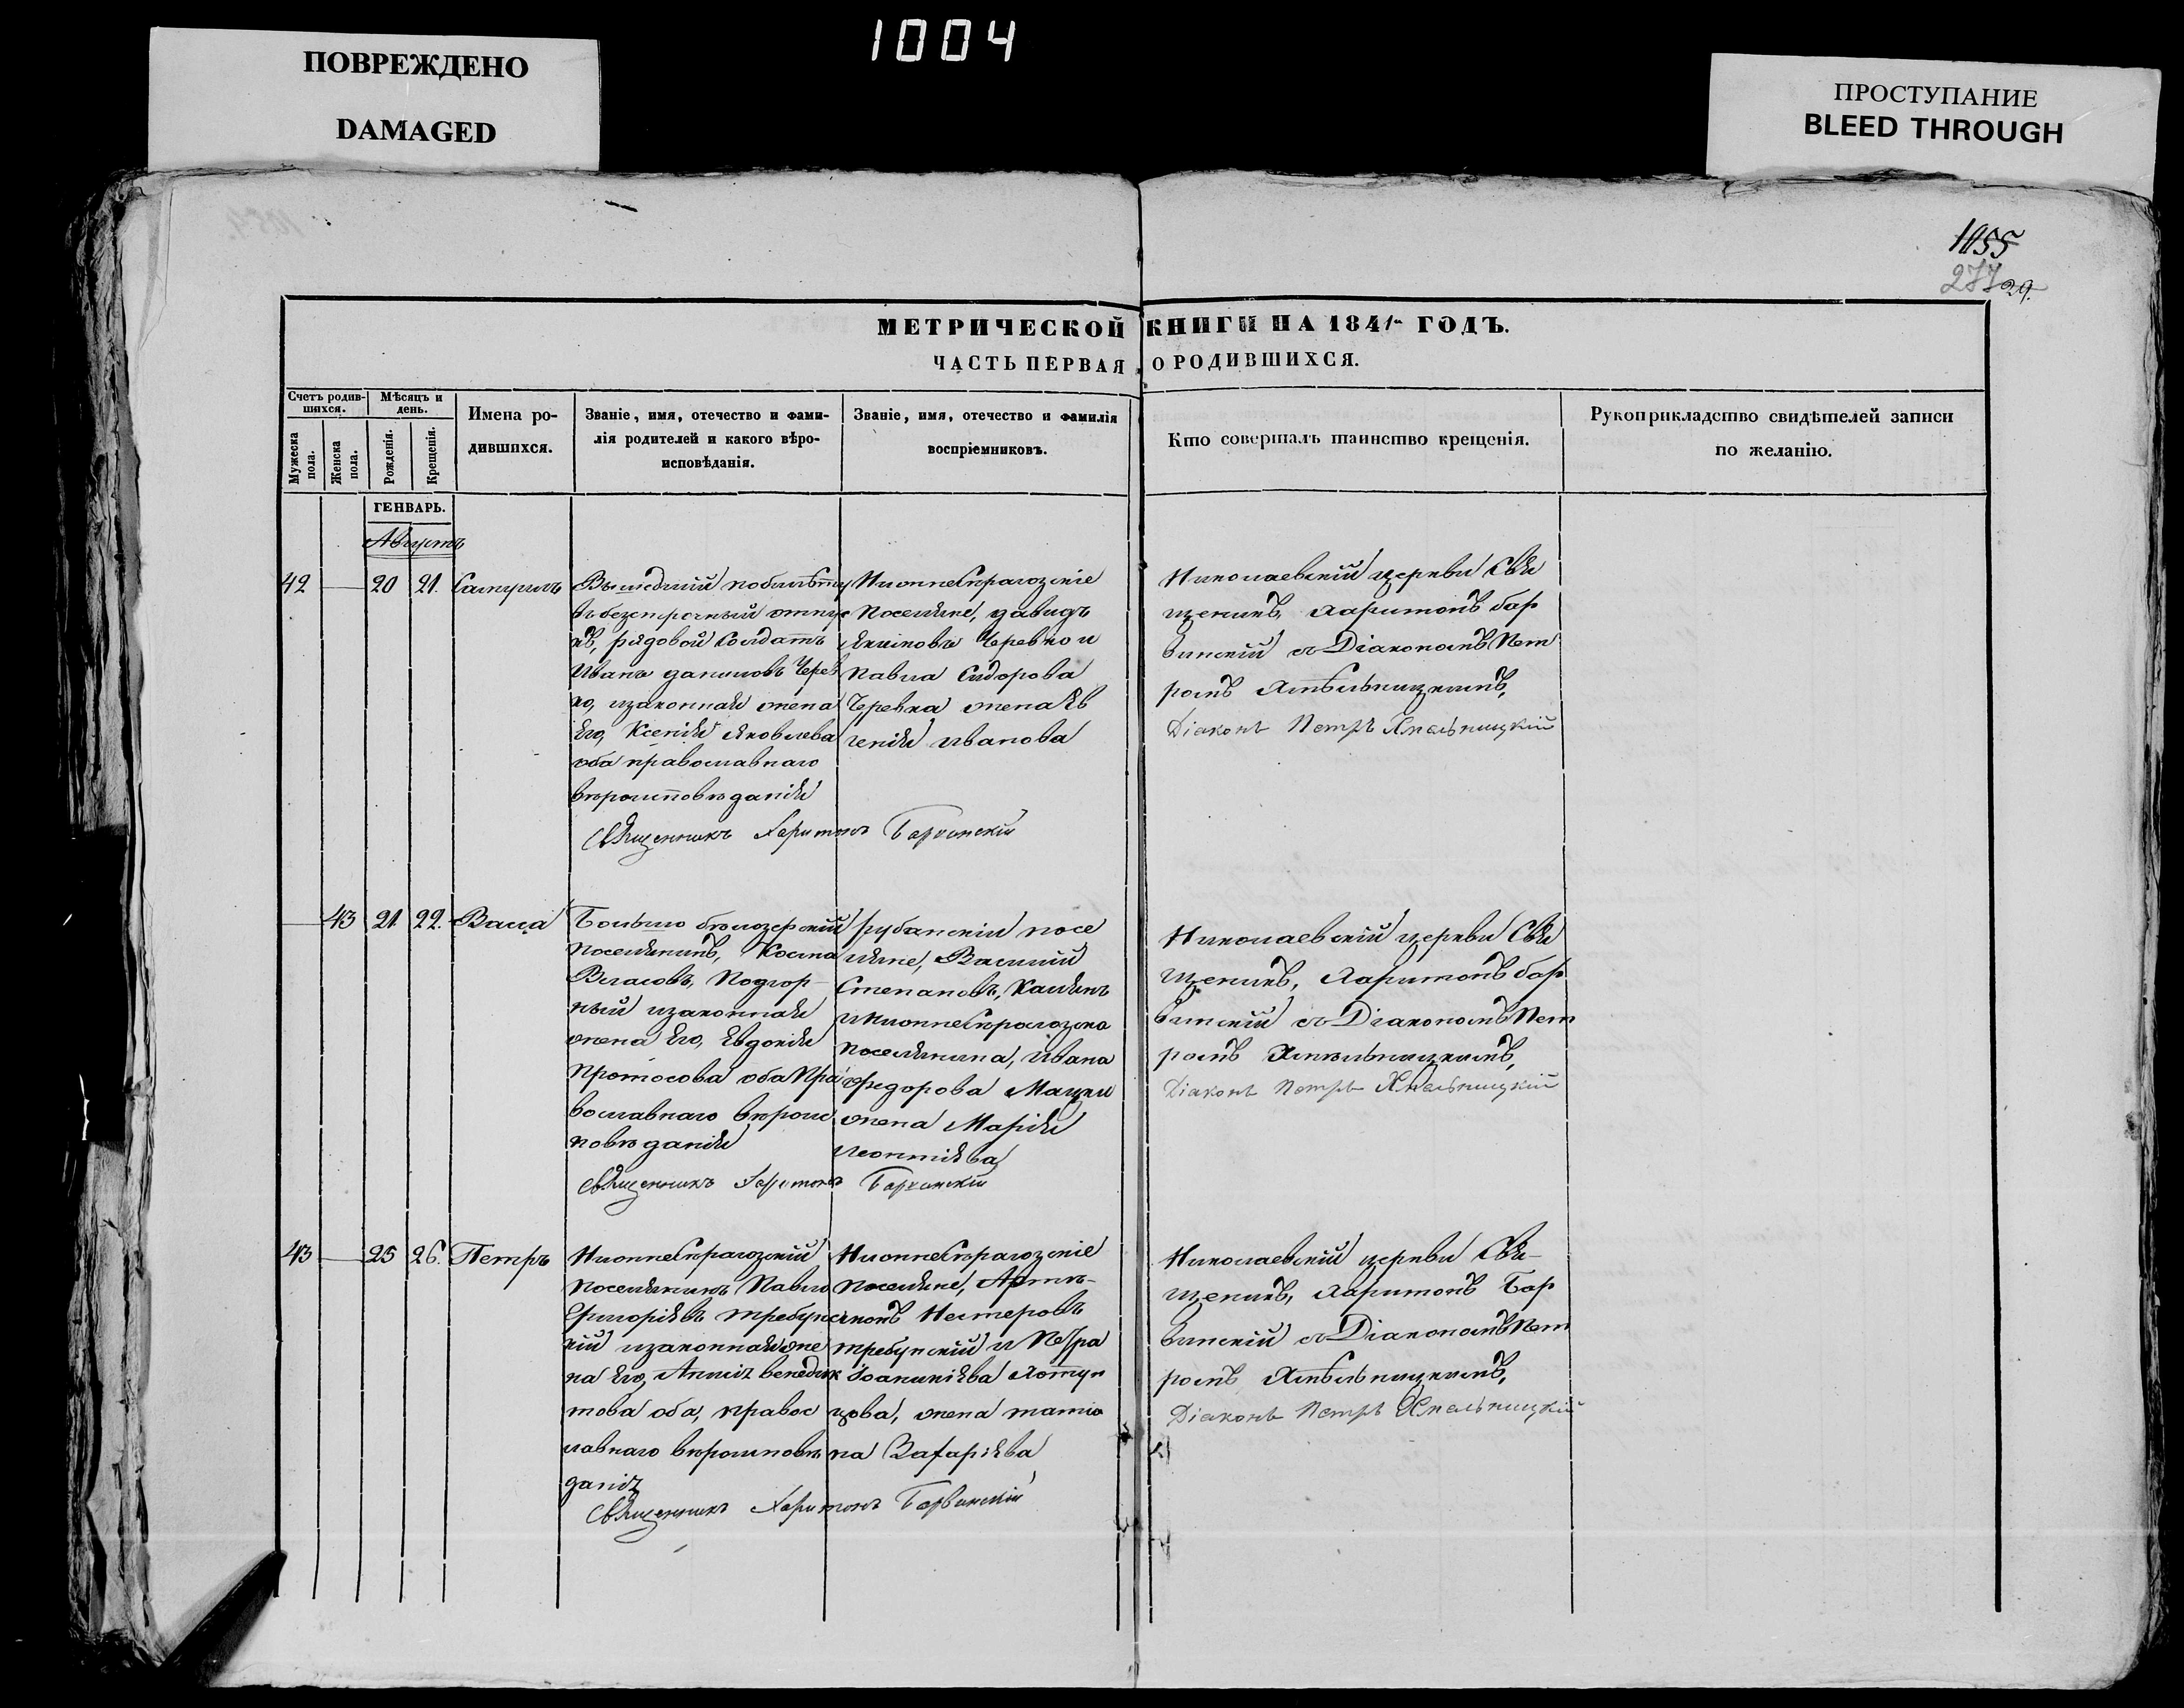 ПОВРЕЖДЕНО
DAMAGED
1004
ПРОСТУПАНИЕ
BLEED THROUGH
1055
277
29.
МЕТРИЧЕСКОЙ КНИГИ НА 1841 ГОДЪ.
ЧАСТЬ ПЕРВАЯ О РОДИВШИХСЯ.
Счетъ родив-
шихся.
Мужеска
пола.
Женска
пола.
Мѣсяцъ и
день.
Рожденія.
Крещенія.
Имена ро-
дившихся.
Званіе, имя, отечество и фами-
лія родителей и какого вѣро-
исповѣданія.
Званіе, имя, отечество и фамилія
воспріемниковъ.
Кто совершалъ таинство крещенія.
Рукоприкладство свидѣтелей записи
по желанію.
ГЕНВАРЬ.
Августъ
42 — 20 21. Самуилъ
Вышедшій побилѣту
въ безсрочный отпус
къ, рядовой Солдатъ
Иванъ даниловъ Черев
ко, изаконная жена
Его, Ксенія яковлева
оба православнаго
вѣроисповѣданія
Нижне Сѣрагозскіе
Поселяне, давидъ
Черевко и
Павла Сидорова
Черевка жена Ев
генія иванова
Священникъ Харитонъ Барвинскій
Николаевскій церкви Свя
щеникъ, Харитонъ бар
винскій съ Діакономъ Пет
ромъ Хмѣльницкимъ,
Діаконъ Петръ Хмельницкій
— 43 21 22. Васса
Большо бѣлозерскій
поселянинъ, Косма
Власовъ, Подгор-
ный изаконная
жена Его, Евдокія
Протосова оба Пра
вославнаго вѣроис
повѣданія
рубанскіи посе
ляне, Василій
Степановъ, Калянъ
и Нижне Сѣрогозска
поселянина, ивана
Федорова Мацки
жена Марія
леонтіева
Священникъ Харитонъ Барвинскій
Николаевскій церкви Свя
щеникъ, Харитонъ бар
винскій съ Діакономъ Пет
ромъ Хмѣльницкимъ,
Діаконъ Петръ Хмельницкій
43 — 25 26. Петръ
Нижне Сѣрагозскій
поселянинъ Павло
Григоріевъ требунс
кій изаконная же
на Его, Анния бенедик
това оба, правос
лавнаго вѣроисповѣ
данія
Нижне Сѣрагозскіе
поселяне, Артѣ-
монъ Нестеровъ
требунскій и Петра
Іоаникіева
цова, жена татіа
на Захаріева
Священникъ Харитонъ Барвинскій
Николаевскій церкви Свя-
щеникъ, Харитонъ Бар
винскій съ Діакономъ Пет
ромъ Хмѣльницкимъ,
Діаконъ Петръ Хмельницкій